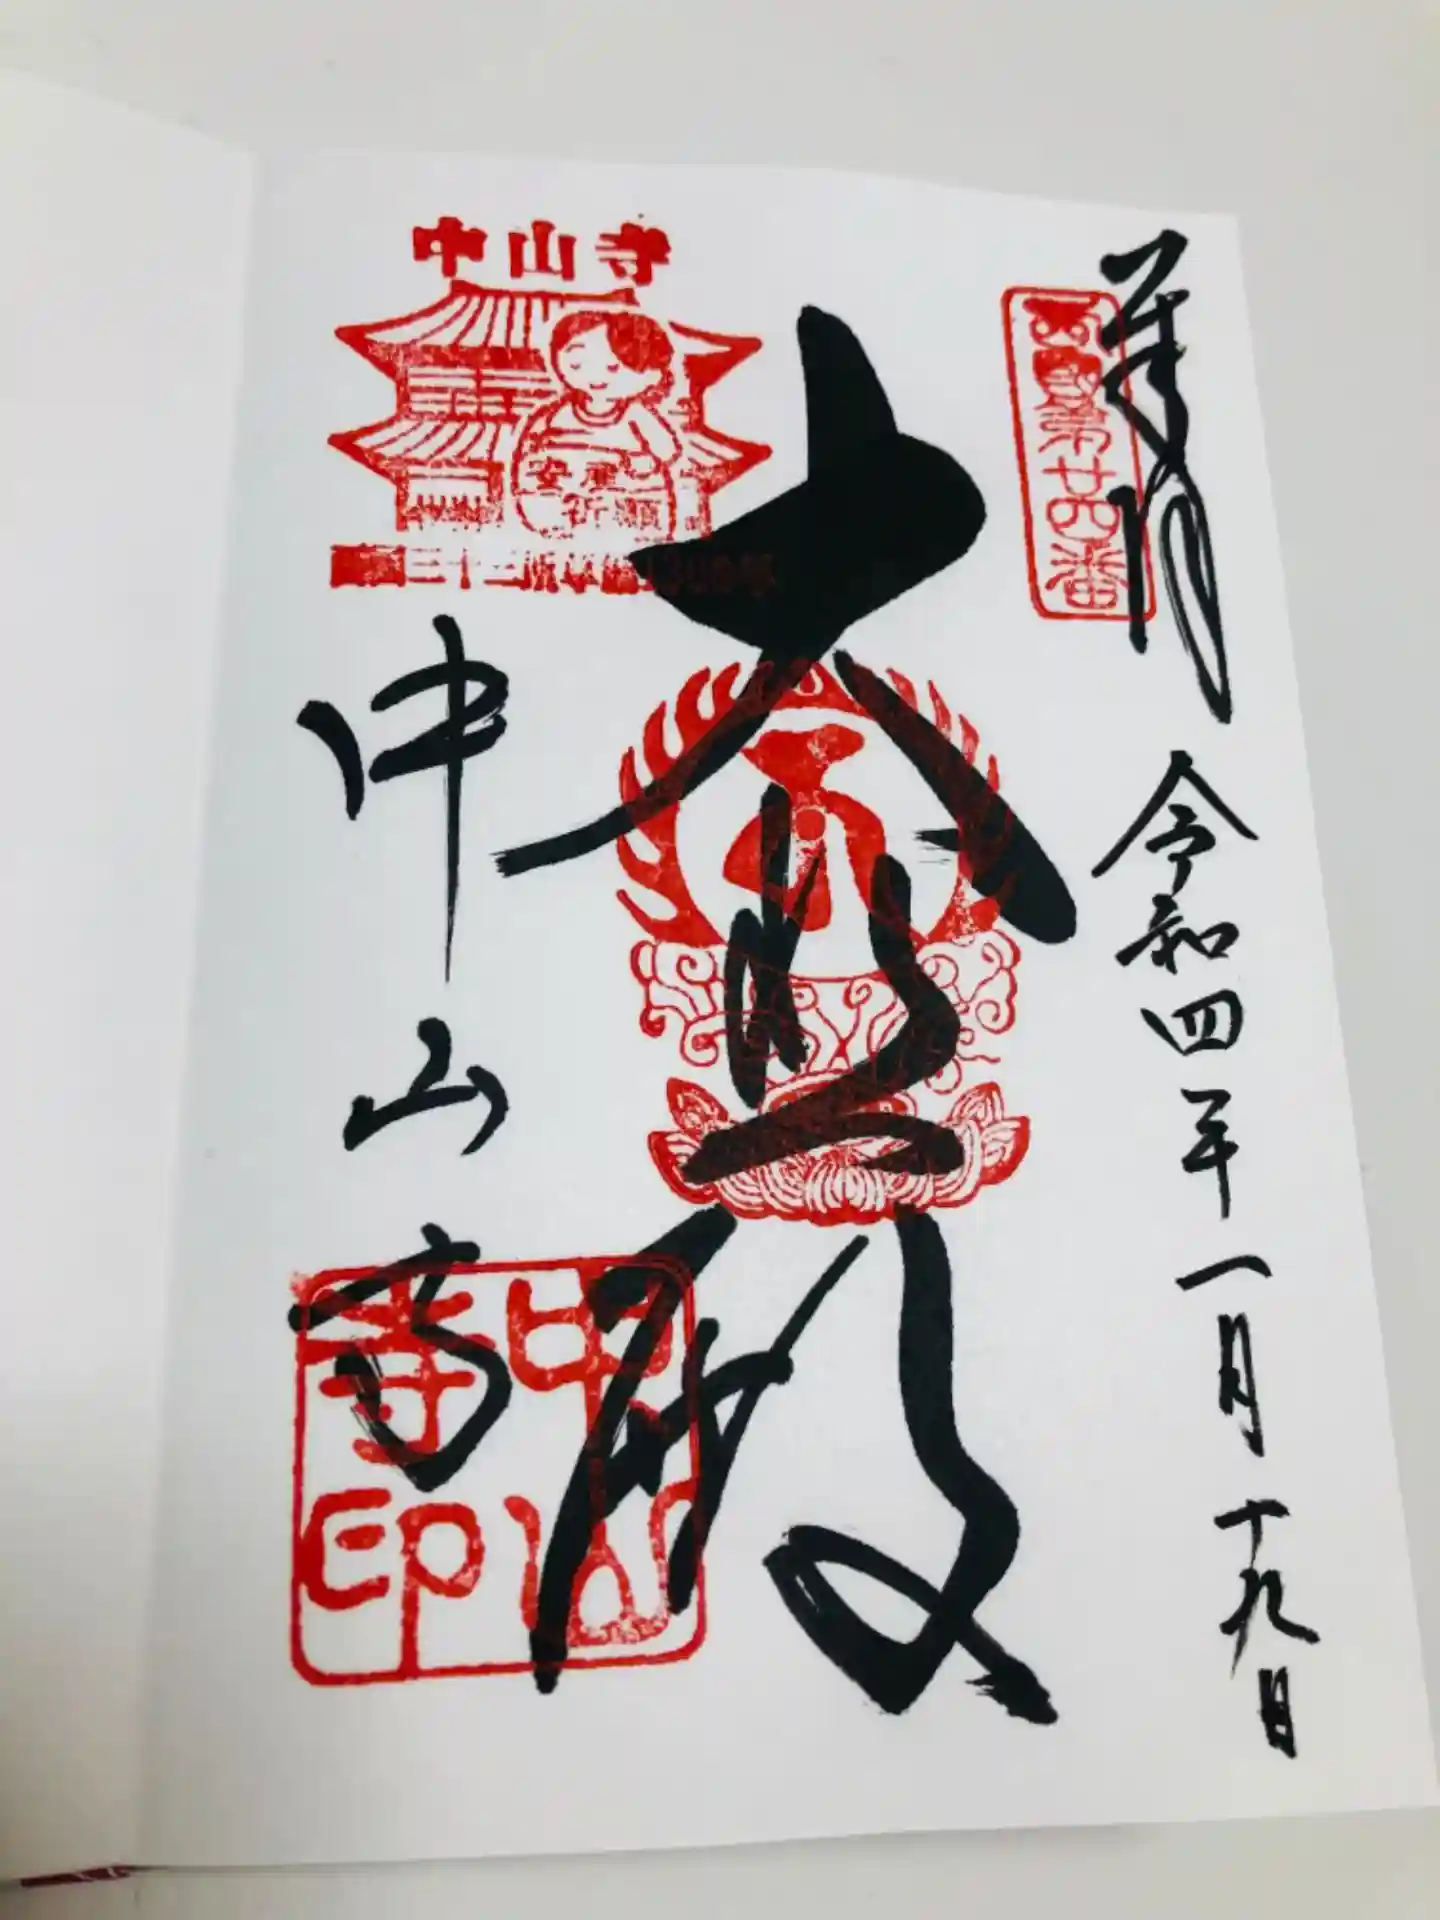 奉拝
西國第廿四番
令和四年一月十九日
大悲殿
中山寺
安産
祈願
中山寺
中山寺印